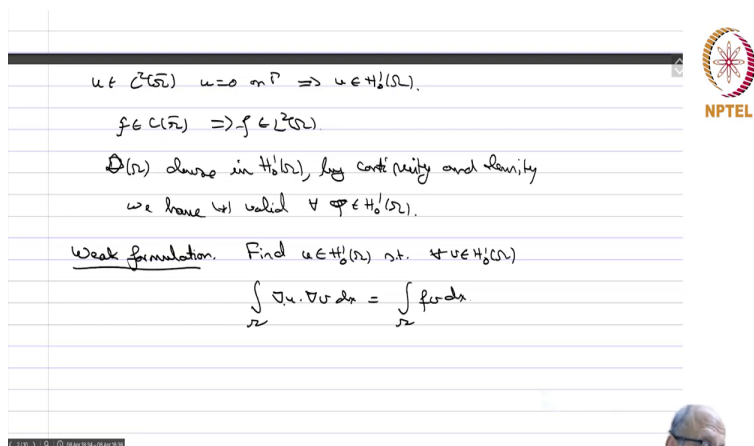 u ∈ C²(Ω̄) u=0 on Γ ⇒ u ∈ H₀¹(Ω).
f ∈ C(Ω̄) ⇒ f ∈ L²(Ω).
D(Ω) dense in H₀¹(Ω), by continuity and density
we have (*) valid ∀ φ ∈ H₀¹(Ω).
Weak formulation. Find u ∈ H₀¹(Ω) s.t. ∀ v ∈ H₀¹(Ω)
∫_Ω ∇u·∇v dx = ∫_Ω fv dx.
NPTEL